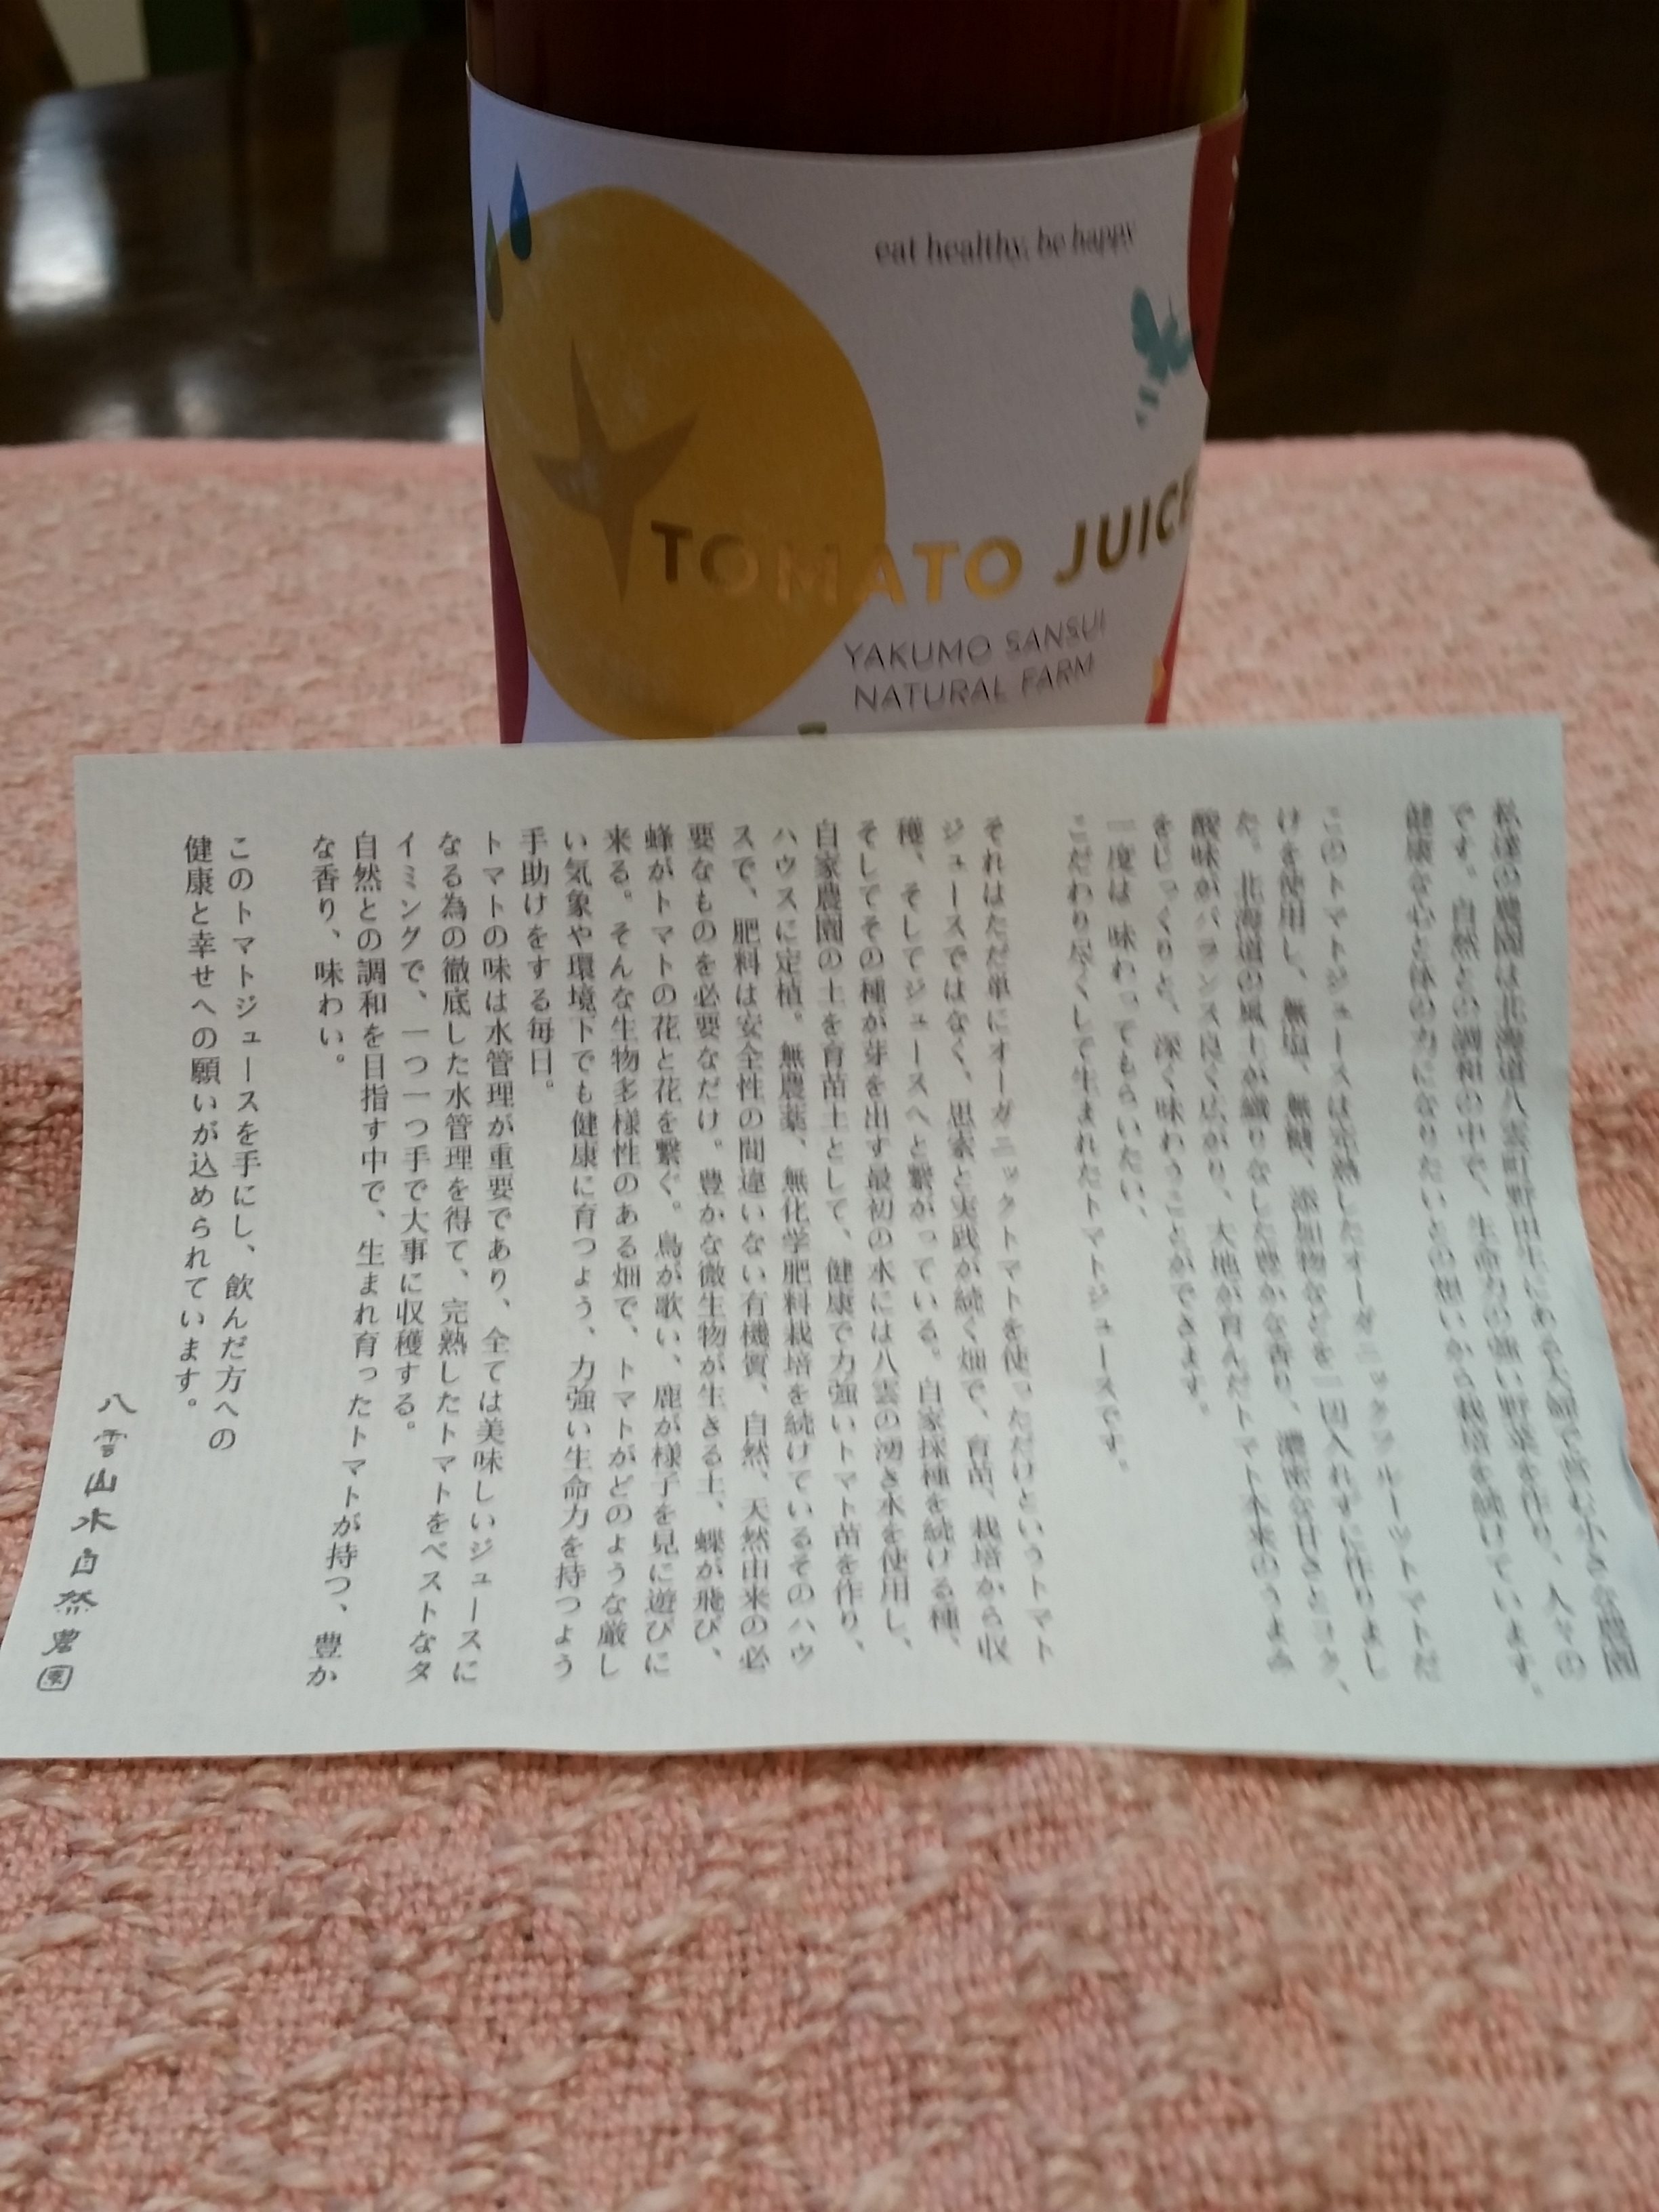 eat healthy, be happy
TOMATO JUICE
YAKUMO SANSUI
NATURAL FARM
私達の農園は北海道八雲町野田生にある夫婦で営む小さな農園
です。自然との調和の中で、生命力の強い野菜を作り、人々の
健康な心と体の力になりたいとの想いから栽培を続けています。
このトマトジュースは完熟したオーガニックフルーツトマトだ
けを使用し、無塩、無糖、添加物などを一切入れずに作りまし
た。北海道の風土が織りなした豊かな香り、濃密な甘さとコク、
酸味がバランス良く広がり、大地が育んだトマト本来のうまみ
をじっくりと、深く味わうことができます。
一度は 味わってもらいたい、
こだわり尽くして生まれたトマトジュースです。
それはただ単にオーガニックトマトを使っただけというトマト
ジュースではなく、思索と実践が続く畑で、育苗、栽培から収
穫、そしてジュースへと繋がっている。自家採種を続ける種、
そしてその種が芽を出す最初の水には八雲の湧き水を使用し、
自家農園の土を育苗土として、健康で力強いトマト苗を作り、
ハウスに定植。無農薬、無化学肥料栽培を続けているそのハウ
スで、肥料は安全性の間違いない有機質、自然、天然由来の必
要なものを必要なだけ。豊かな微生物が生きる土、蝶が飛び、
蜂がトマトの花と花を繋ぐ。鳥が歌い、鹿が様子を見に遊びに
来る。そんな生物多様性のある畑で、トマトがどのような厳し
い気象や環境下でも健康に育つよう、力強い生命力を持つよう
手助けをする毎日。
トマトの味は水管理が重要であり、全ては美味しいジュースに
なる為の徹底した水管理を得て、完熟したトマトをベストなタ
イミングで、一つ一つ手で大事に収穫する。
自然との調和を目指す中で、生まれ育ったトマトが持つ、豊か
な香り、味わい。
このトマトジュースを手にし、飲んだ方への
健康と幸せへの願いが込められています。
八雲山水自然農園